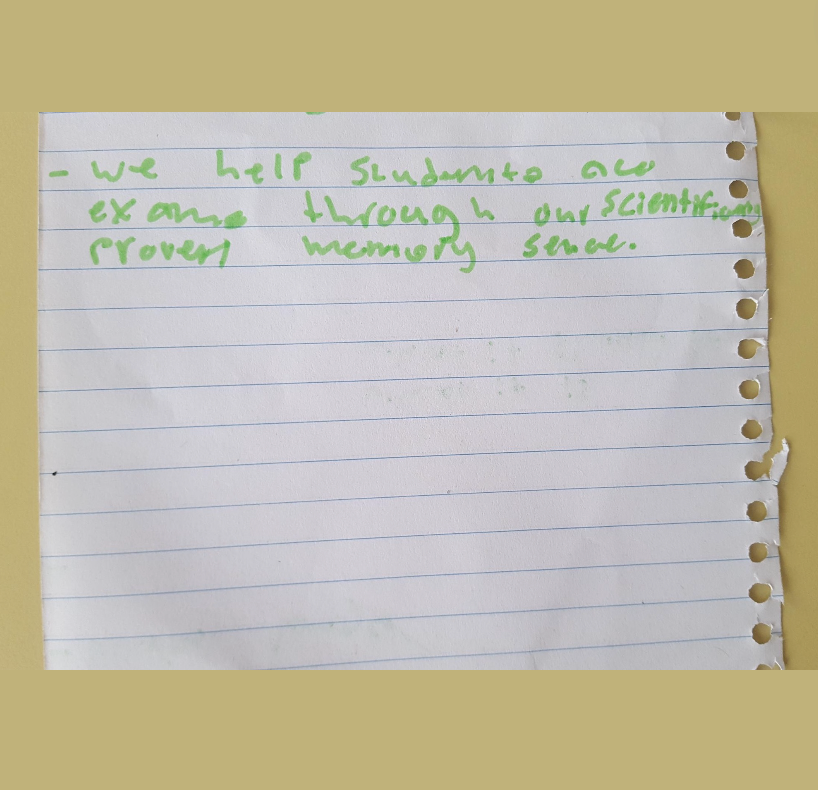 - we help students ace
exams through our scientifically
proven memory